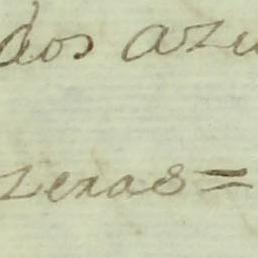 dos azu
zeras=